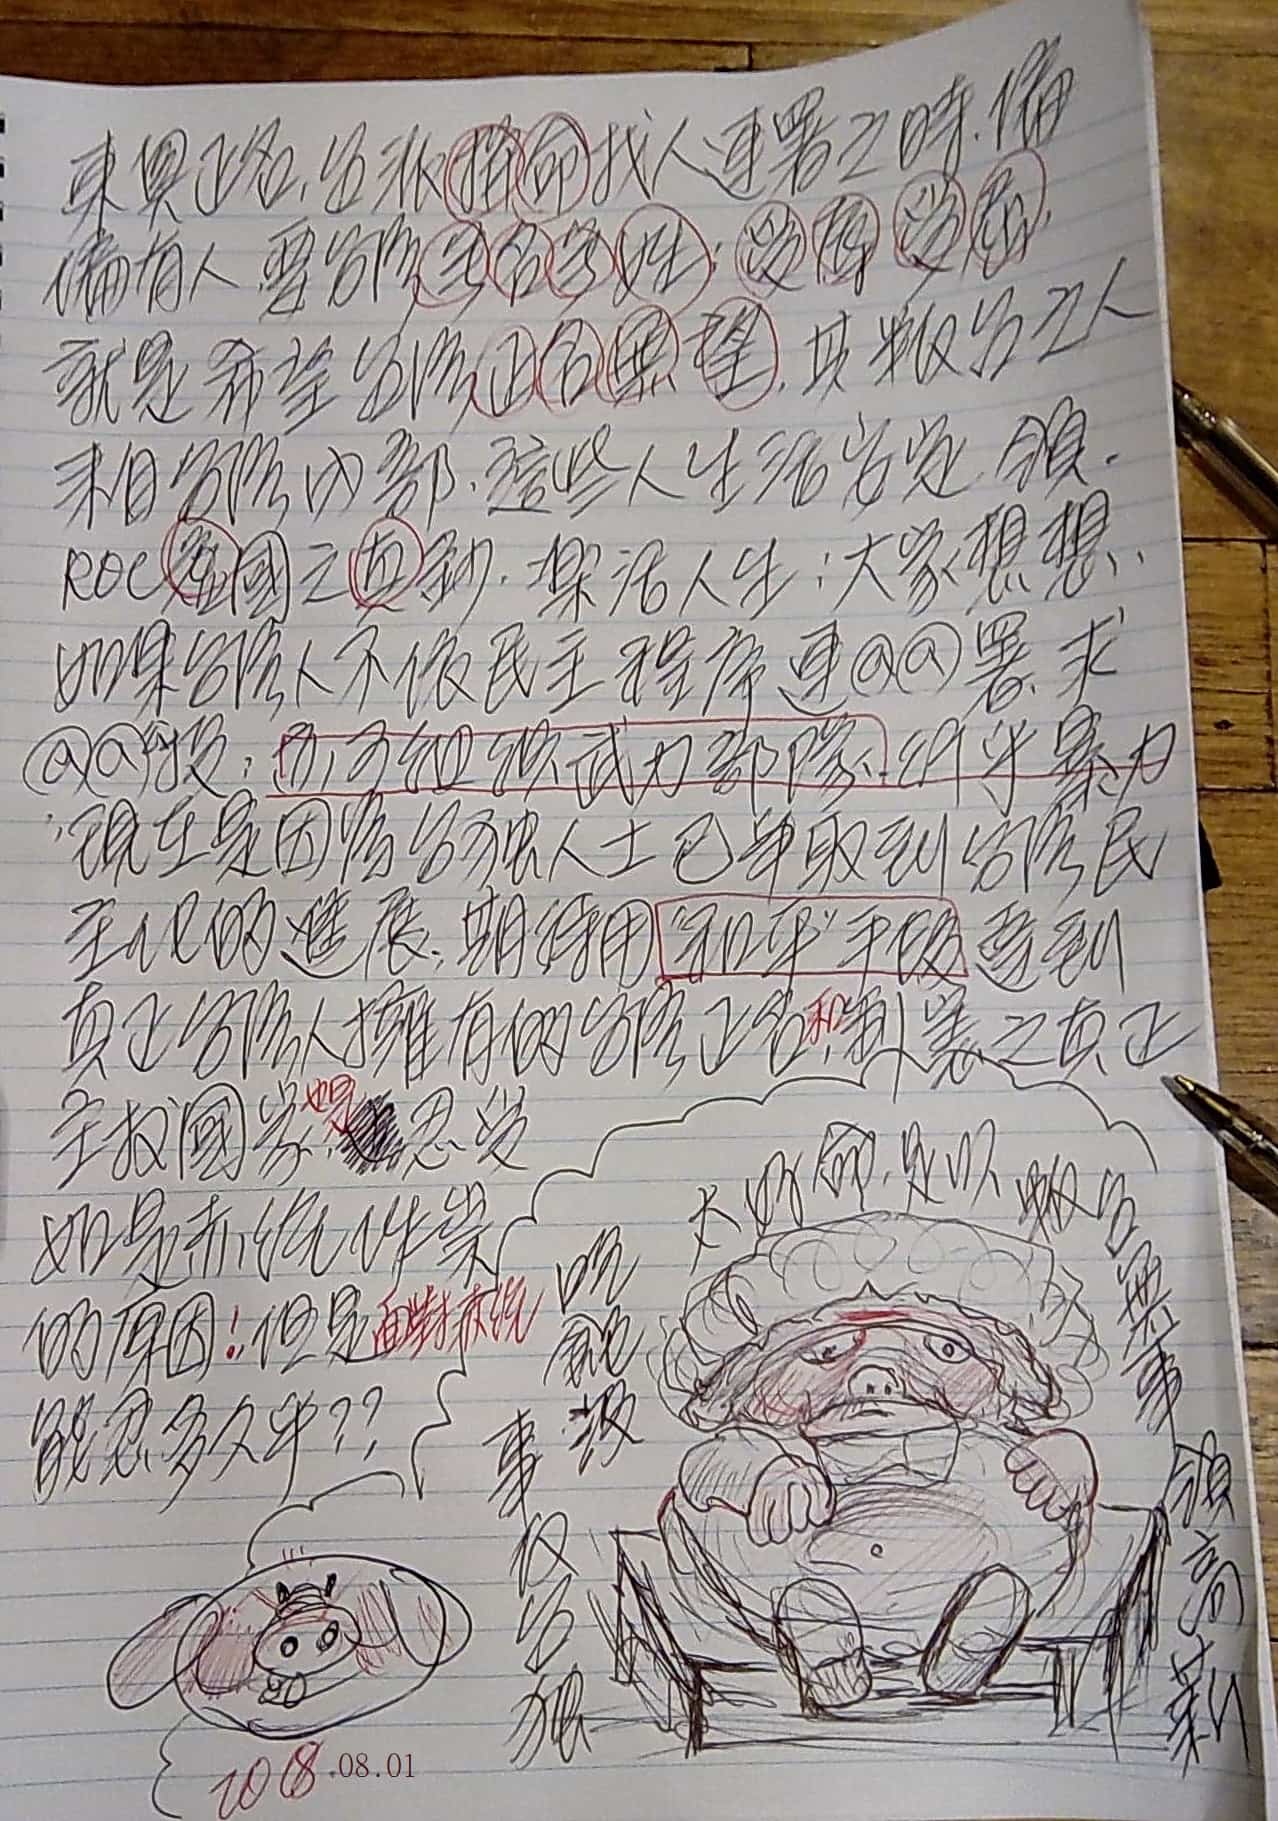 東奧正名, 台派拚命找人連署之時, 偏
偏有人要台灣無名無姓;
就是希望台灣正名無望, 其叛台之人
來自台灣內部, 這些人生活安定, 領
ROC 國之真鈔, 樂活人生; 大家想想,
如果台灣人不依民主程序連@@署、求
@@投; 而組織武力部隊, 行乎暴力
;現在是因為台獨人士已爭取到台灣民
主化的進展, 期待用"和平"手段達到
真正台灣人擁有的台灣正名和制憲之真正
主權國家, 忍受
如是赤統作祟
的原因! 但是面對赤統
能忍多久年??
大好命, 是以叛台無事領高薪
事
反台獨
2018.08.01